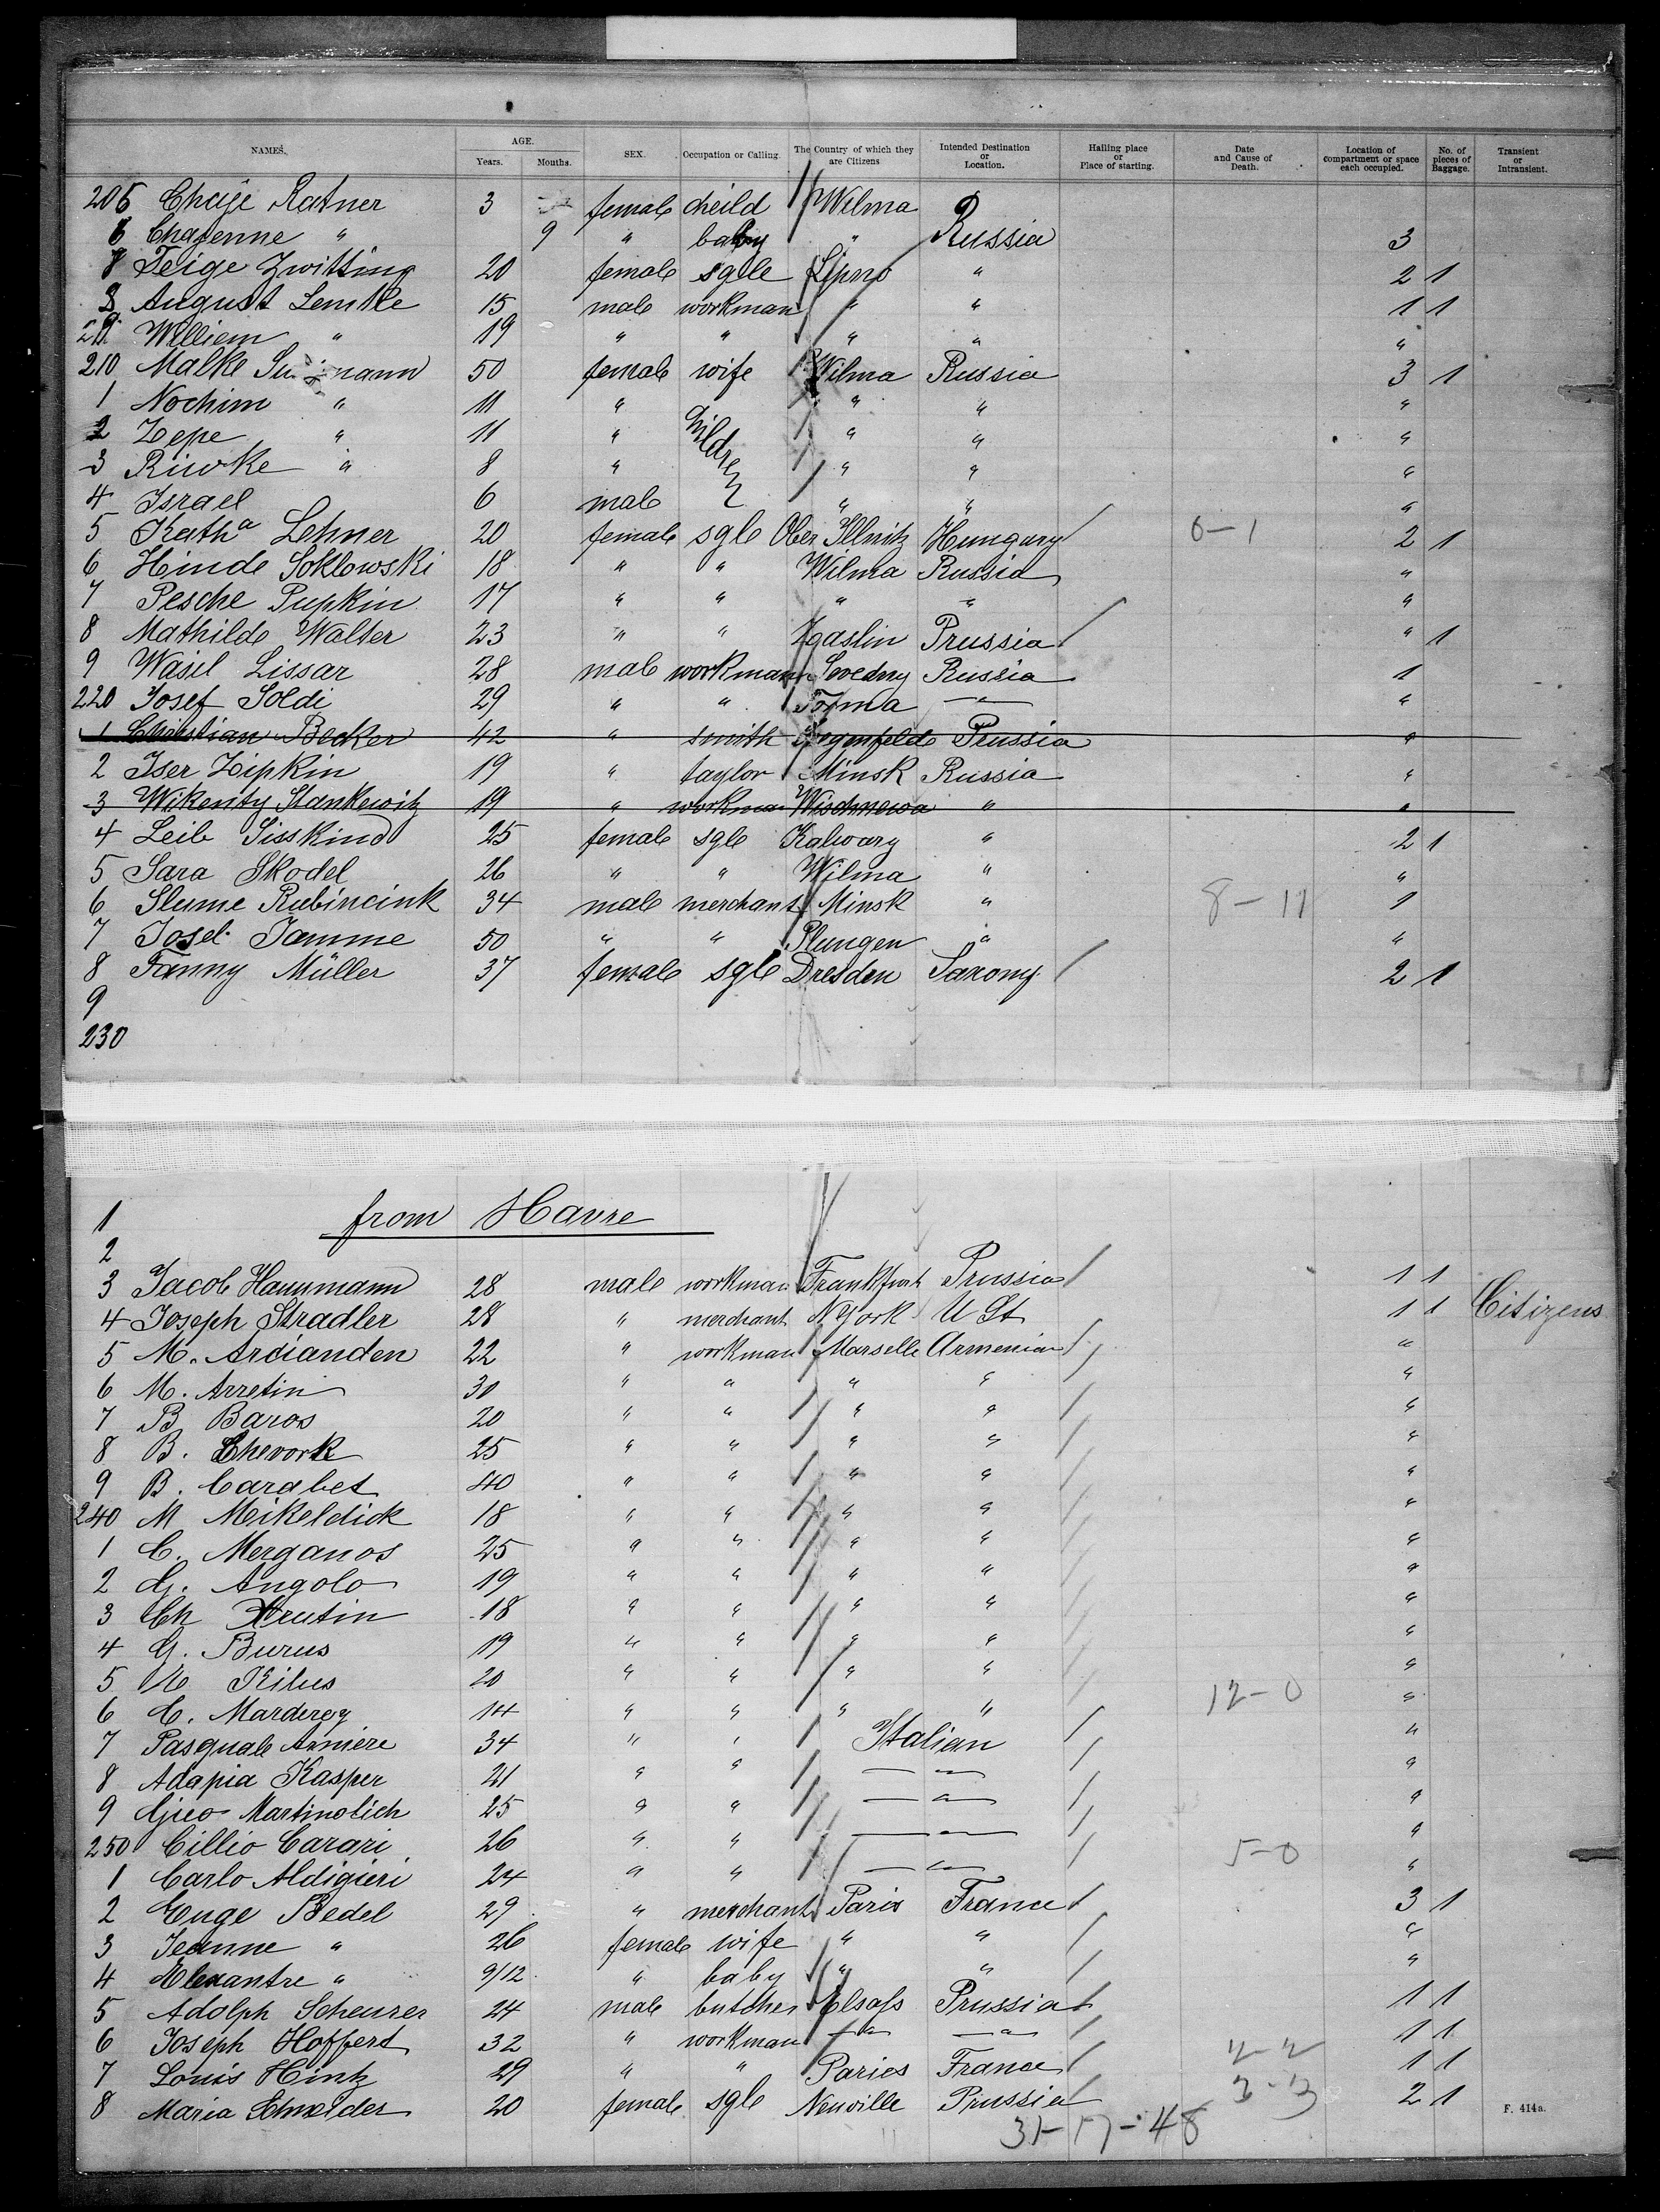 NAMES. AGE. SEX. Occupation or Calling. The Country of which they are Citizens Intended Destination or Location. Hailing place or Place of starting. Date and Cause of Death. Location of compartment or space each occupied. No. of pieces of Baggage. Transient or Intransient.
Years. Months.
205 Chaje Ratner 3 female cheild Wilma
6 Chajenne " 9 " baby " Russia 3
Feige Zwitting 20 female sgle Lipno " 2 1
8 August Lemke 15 male workman " " 1 1
9 Williem " 19 " " " " "
210 Malke 50 female wife Wilma Russia 3 1
1 Nochim " 11 " " " "
2 Zepe " 11 " children " " "
3 Riwke " 8 " " " "
4 Israel 6 male " " "
5 Kath a Lehner 20 female sgle Ober Illnitz Hungary 6-1 2 1
6 Hinde Soklowski 18 " " Wilma Russia "
7 Pesche Pupkin 17 " " " " "
8 Mathilde Walter 23 " " Zgaslin Prussia " 1
9 Wasil Lissar 28 male workman Russia 1
220 Josef Soldi 29 " " Forma " "
1 Christian Becker 42 " smith Prussia "
2 Iser Zipkin 19 " taylor Minsk Russia "
3 Wikenty Stankewitz 19 " workman Wischnewa " "
4 Leib Sisskind 25 female sgle Kalwary " 2 1
5 Sara Skodel 26 " " Wilma " "
6 Slume Rubincink 34 male merchant Minsk " 8-11 1
7 Josel Jamme 50 " " Plungen " "
8 Fanny Müller 37 female sgle Dresden Saxony 2 1
9
230
1 from Havre
2
3 Jacob Hannmann 28 male workman Frankfurt Prussia 1 1
4 Joseph Stradler 28 " merchant N York U St 1 1 Citizens
5 M. Arcianden 22 " workman Marselle Armenian "
6 M. Arretin 30 " " " " "
7 B Baros 20 " " " " "
8 B. Chevork 25 " " " " "
9 B. Carabet 40 " " " " "
240 M Mikeldick 18 " " " " "
1 C. Merganos 25 " " " " "
2 G. Angolo 19 " " " " "
3 Ch Arutin 18 " " " " "
4 G. Burus 19 " " " " "
5 Kilus 20 " " " " "
6 C. Marderoy 14 " " " " 12-0 "
7 Pasquale Anniere 34 " " Italian "
8 Adapia Kasper 21 " " " "
9 Gieo Martinolich 25 " " " "
250 Cillio Carari 26 " " " "
1 Carlo Aldigieri 24 " " " 5-0 "
2 Euge Bedel 29 " merchant Paris France 3 1
3 Jeanne " 26 female wife " " "
4 Elexantre " 9/12 " baby " " "
5 Adolph Scheurer 24 male butcher Elsass Prussia 1 1
6 Joseph Hoffert 32 " workman " " 2-2 1 1
7 Louis Hintz 29 " " Paries France 3-3 1 1
8 Maria Schneider 20 female sgle Neuville Prussia 2 1
31-17-48
F. 414a.